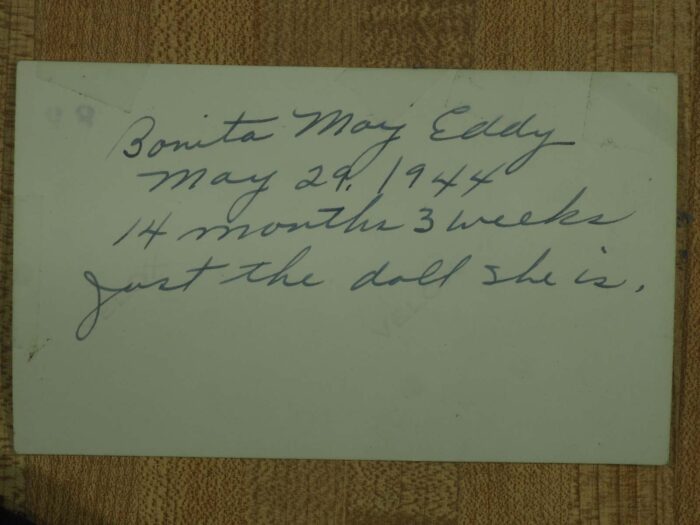 Bonita May Eddy
May 29, 1944
14 months 3 weeks
Just the doll she is.